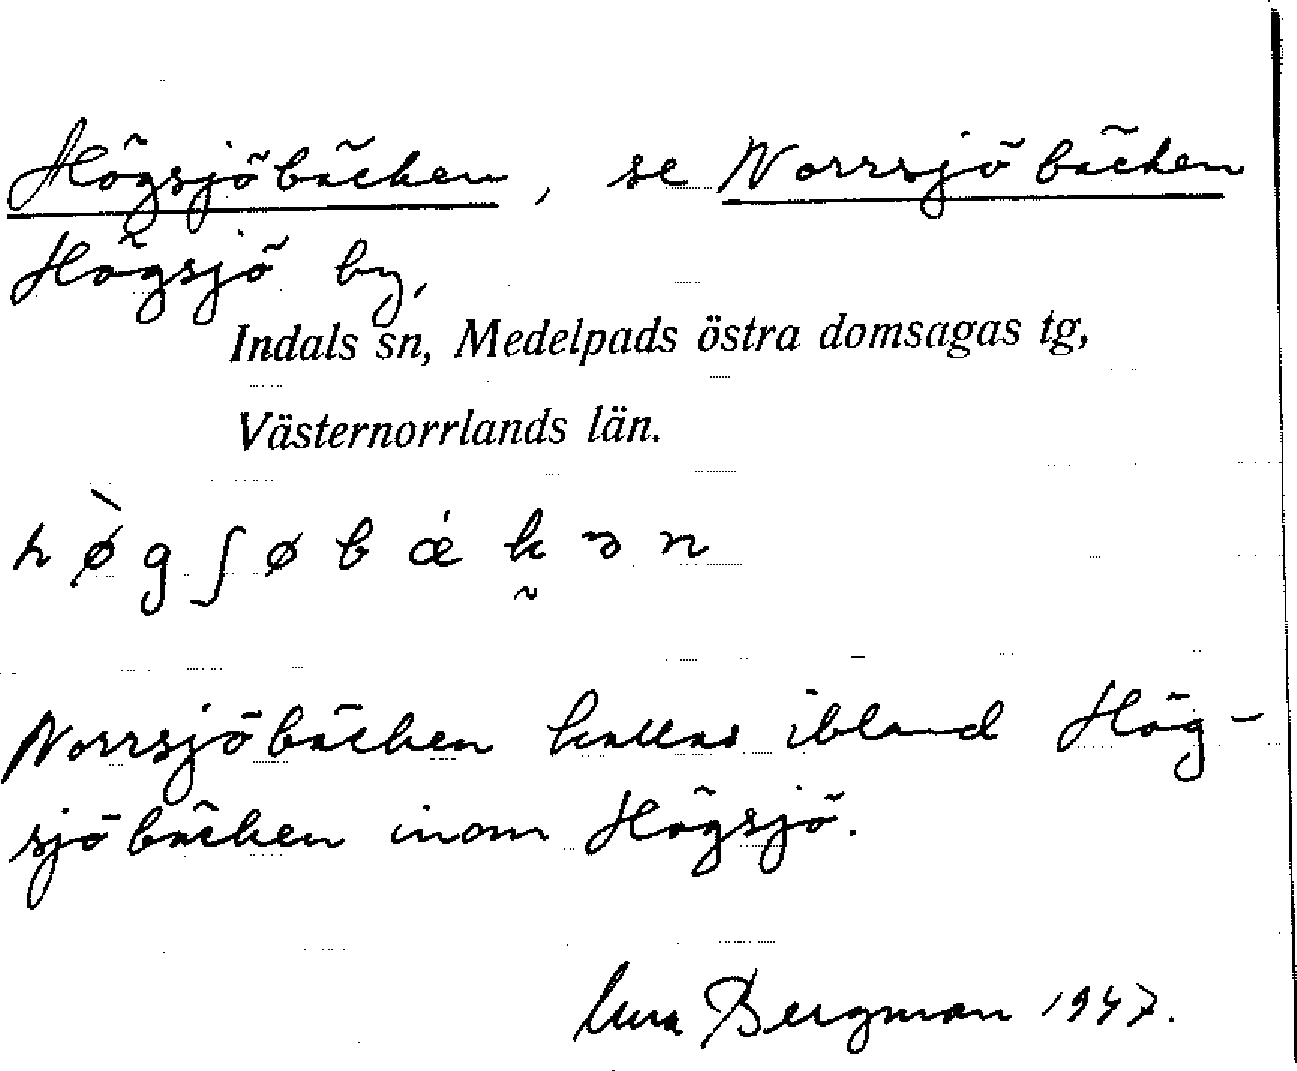 Högsjöbäcken, se Norrsjöbäcken
Högsjö by,
Indals sn, Medelpads östra domsagas tg,
Västernorrlands län.
h ø̀ g ʃ ø b ǽ k̰ ə n
Norrsjöbäcken kallas ibland Hög-
sjöbäcken inom Högsjö.
Bergman 1947.